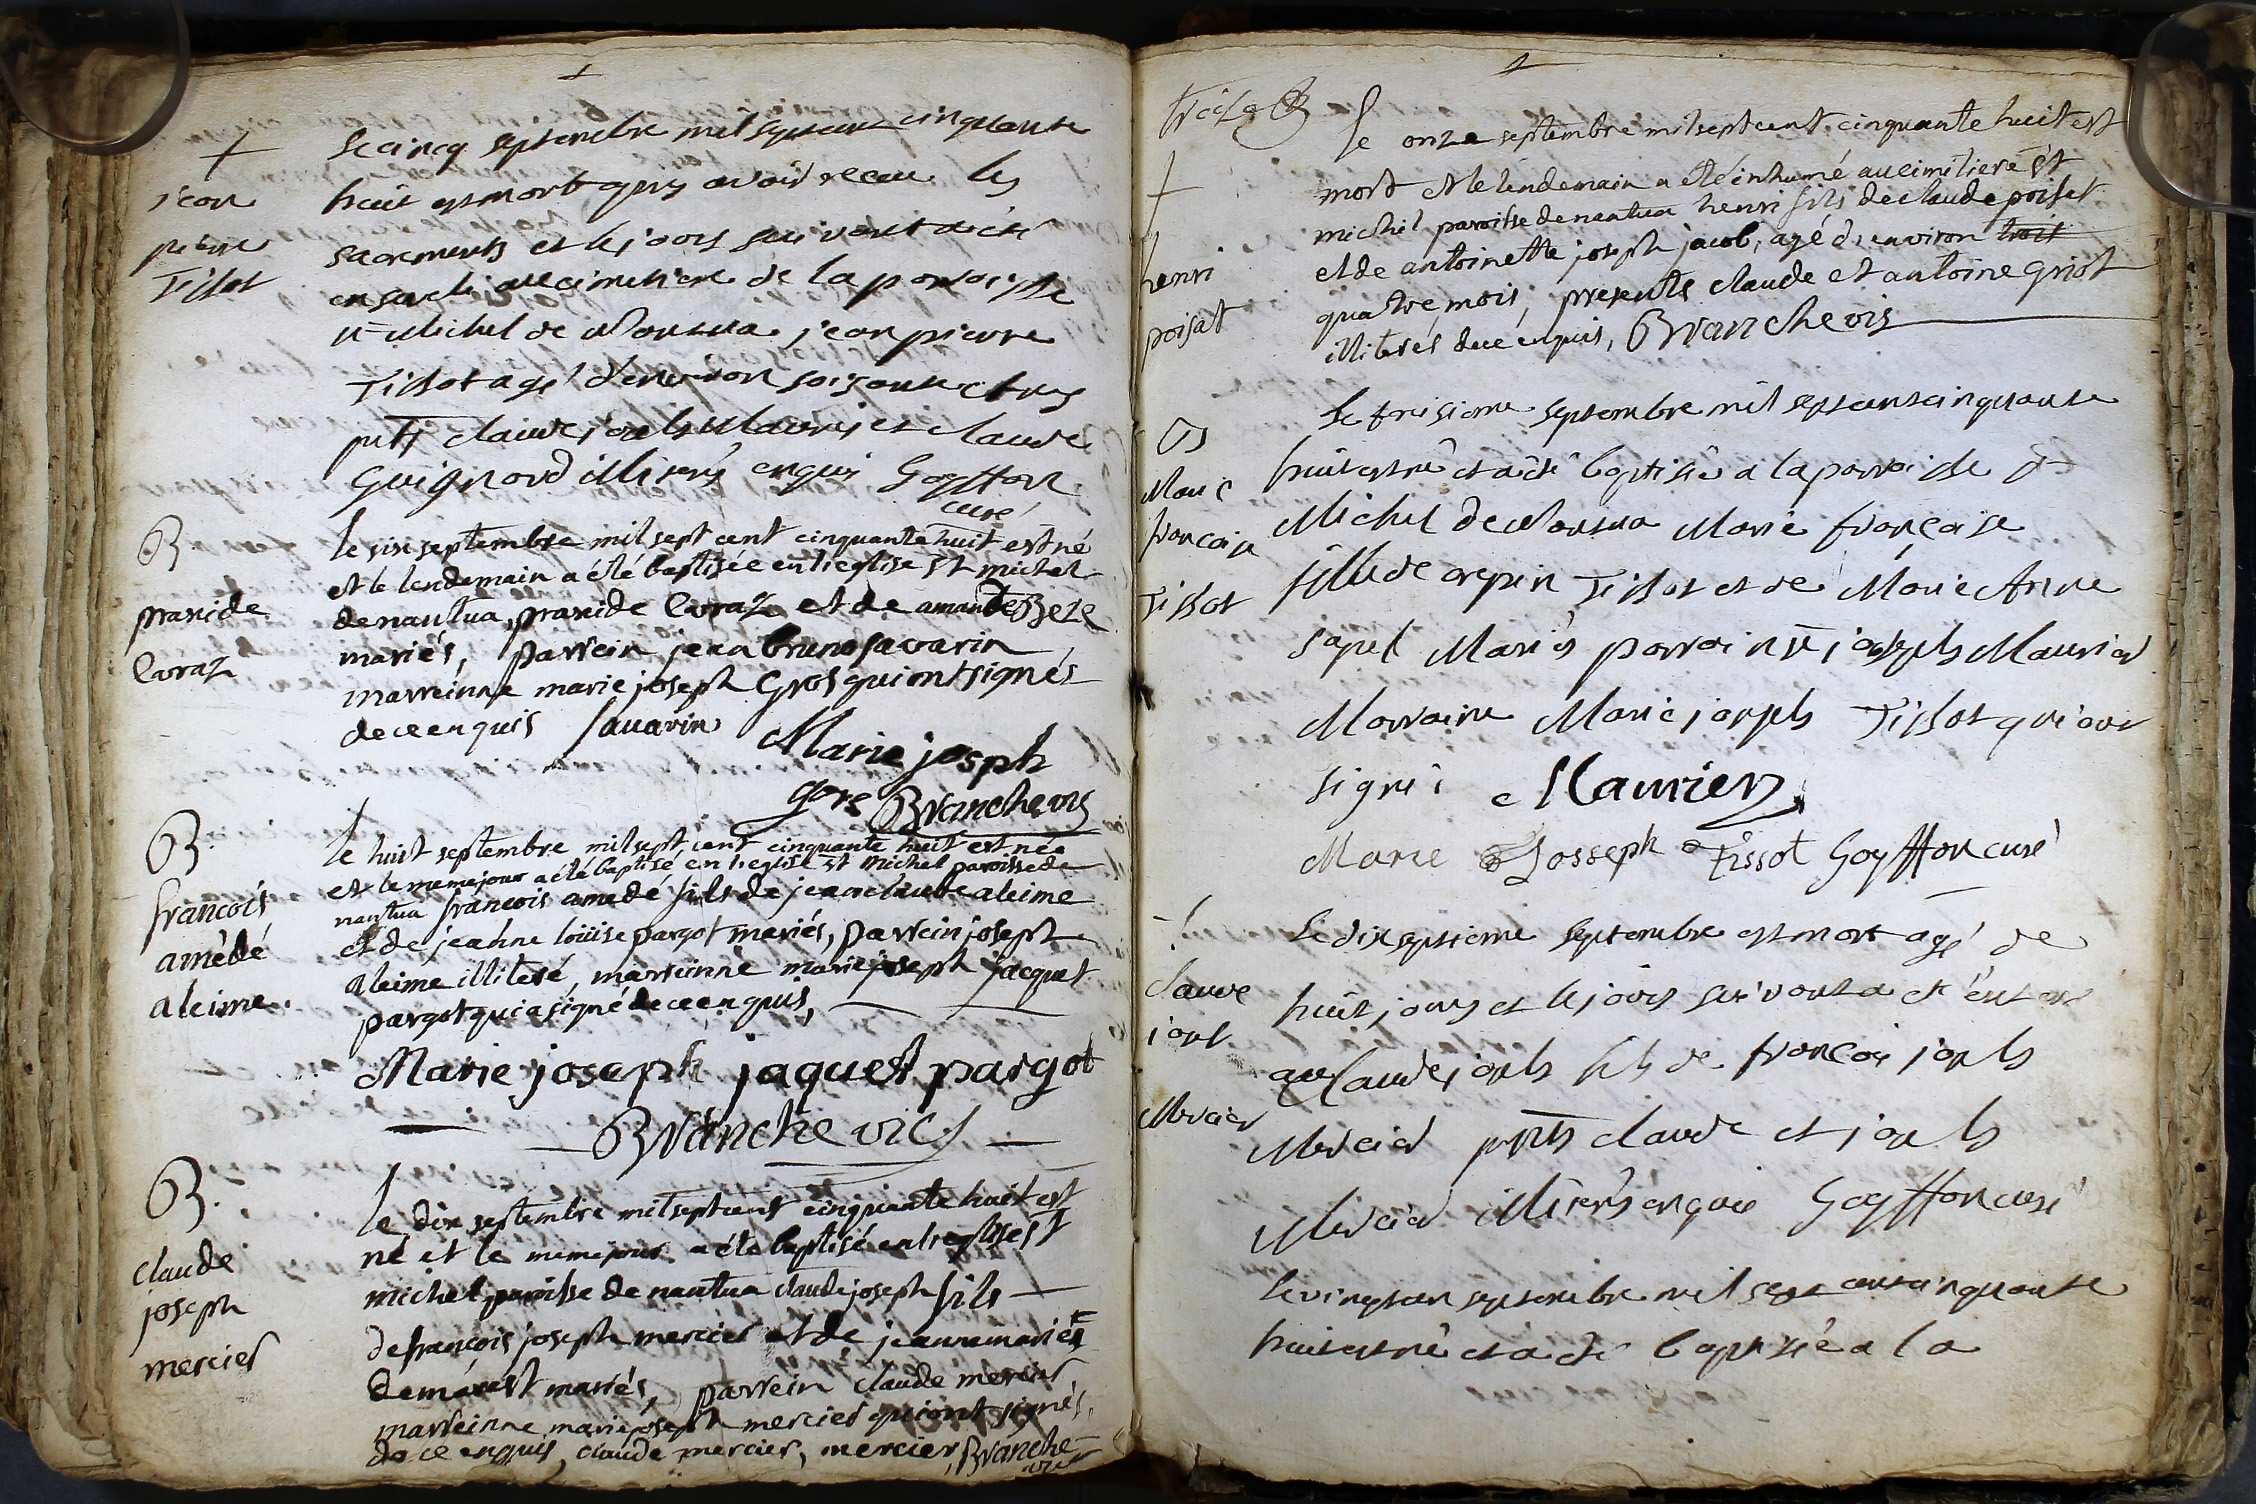 +
jean
pierre
Tissot
Le cinq septembre mil sept cent cinquante
huit est mort apres avoir receu les
sacrements et le jour suivant a été
enseveli au cimetiere de la paroisse
st Michel de Nantua jean pierre
Tissot agé d'environ soixante et
claude joseph et claude
Guignard illiterés enquis Goyffon
curé
B.
praxide
Cvraz
le six septembre mil sept cent cinquante huit est né
et le lendemain a été baptisée en l'eglise st michel
de nantua, praxide et de amande
mariés, parrein jean bruno savarin
marreinne marie joseph Gros qui ont signés
de ce enquis Savarin
Marie joseph
gore Branche vic
B.
francois
amédé
aleime.
le huit septembre mil sept cent cinquante huit est né
et le meme jour a été baptisé en l'eglise st michel paroisse de
nantua francois amedé fils de jean claude aleime
et de jeanne loüise pargot mariés, parrein joseph
aleime illiteré, marreinne marie joseph jacquet
pargot qui a signé de ce enquis,
Marie joseph jaquet pargot
Branche vic
B.
claude
joseph
mercier
le dix septembre mil sept cent cinquante huit est
né et le meme jour a été baptisé en l'eglise st
michel paroisse de nantua claude joseph fils
de francois joseph mercier et de jeanne marie
demarest mariés, parrein claude mercier
marreinne marie joseph mercier qui ont signés,
de ce enquis, claude mercier, mercier, Branche
vic
treize
+
henri
poisat
le onze septembre mil sept cent cinquante huit est
mort et le lendemain a été inhumé au cimitiere st
michel paroisse de nantua henri fils de claude poisat
et de antoinette joseph jacob, agé d'environ trois
quatre mois, presents claude et antoine griot
illiterés de ce enquis, Branche vic
B
Marie
françoise
Tissot
Le treisieme septembre mil sept cent cinquante
huit est né et a été baptisée a la paroisse st
Michel de Nantua Marie françoise
fille de crepin Tissot et de Marie Anne
Mariés parrain joseph Maurier
Marraine Marie joseph Tissot qui ont
signé Maurier
Marie Josseph Tissot Goyffon curé
+
claude
joseph
Mercier
Le dix septieme septembre est mort agé de
huit jours et le jour suivant a été enterré
claude joseph fils de françois joseph
Mercier pnts claude et joseph
Mercier illiterés enquis Goyffon curé
Le vingt un septembre mil sept cent cinquante
huit est né et a été baptisée a la